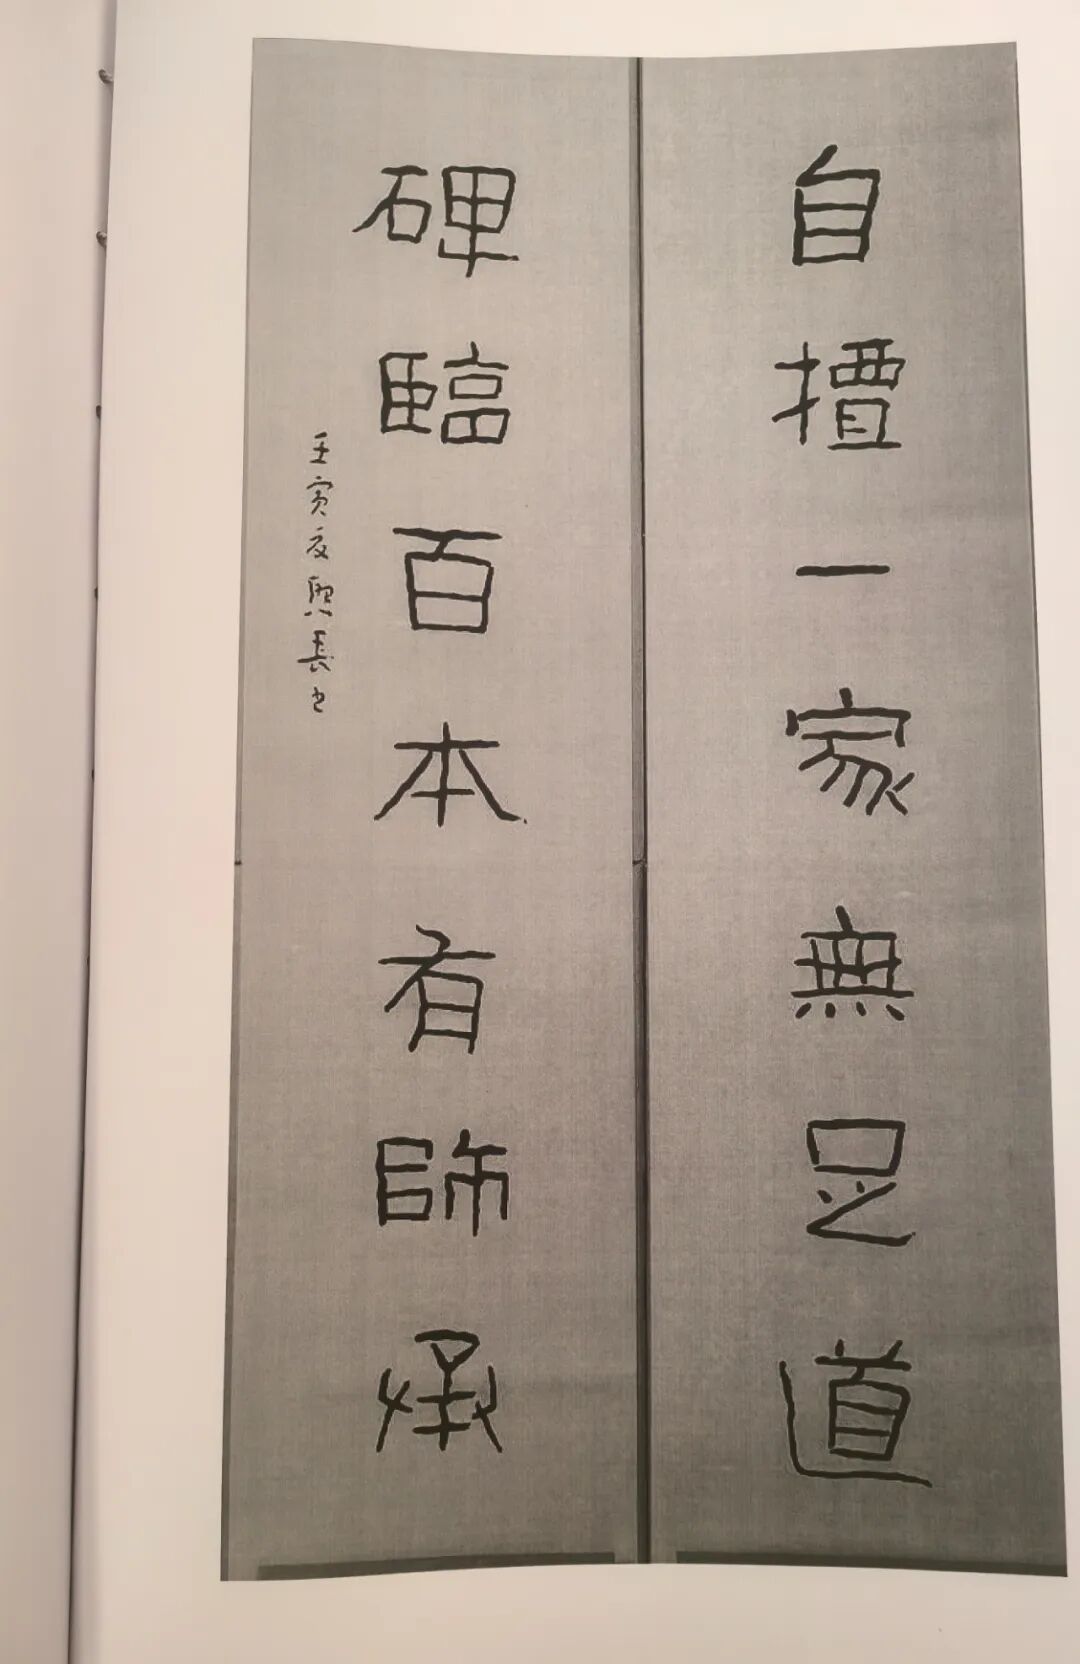 自擅一家無足道
碑臨百本有師承
壬寅夏長书